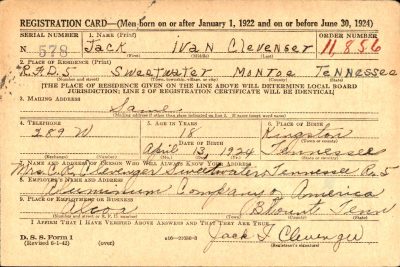 REGISTRATION CARD—(Men born on or after January 1, 1922 and on or before June 30, 1924)
SERIAL NUMBER 1. NAME (Print) ORDER NUMBER
N 578 Jack Ivan Clevenger 11,856
(First) (Middle) (Last)
2. PLACE OF RESIDENCE (Print)
R.F.D.5 Sweetwater Monroe Tennessee
(Number and street) (Town, township, village, or city) (County) (State)
[THE PLACE OF RESIDENCE GIVEN ON THE LINE ABOVE WILL DETERMINE LOCAL BOARD
JURISDICTION; LINE 2 OF REGISTRATION CERTIFICATE WILL BE IDENTICAL]
3. MAILING ADDRESS
Same
[Mailing address if other than place indicated on line 2. If same insert word same]
4. TELEPHONE 5. AGE IN YEARS 6. PLACE OF BIRTH
289 W 18 Kingston
DATE OF BIRTH (Town or county)
April 13, 1924 Tennessee
(Exchange) (Number) (Mo.) (Day) (Yr.) (State or country)
7. NAME AND ADDRESS OF PERSON WHO WILL ALWAYS KNOW YOUR ADDRESS
Mrs. C.R. Clevenger Sweetwater Tennessee R.5
8. EMPLOYER'S NAME AND ADDRESS
Aluminum Company of America
9. PLACE OF EMPLOYMENT OR BUSINESS
Alcoa Blount Tenn
(Number and street or R. F. D. number) (Town) (County) (State)
I AFFIRM THAT I HAVE VERIFIED ABOVE ANSWERS AND THAT THEY ARE TRUE.
D. S. S. Form 1
(Revised 6-1-42) (over) Jack I Clevenger
(Registrant's signature)